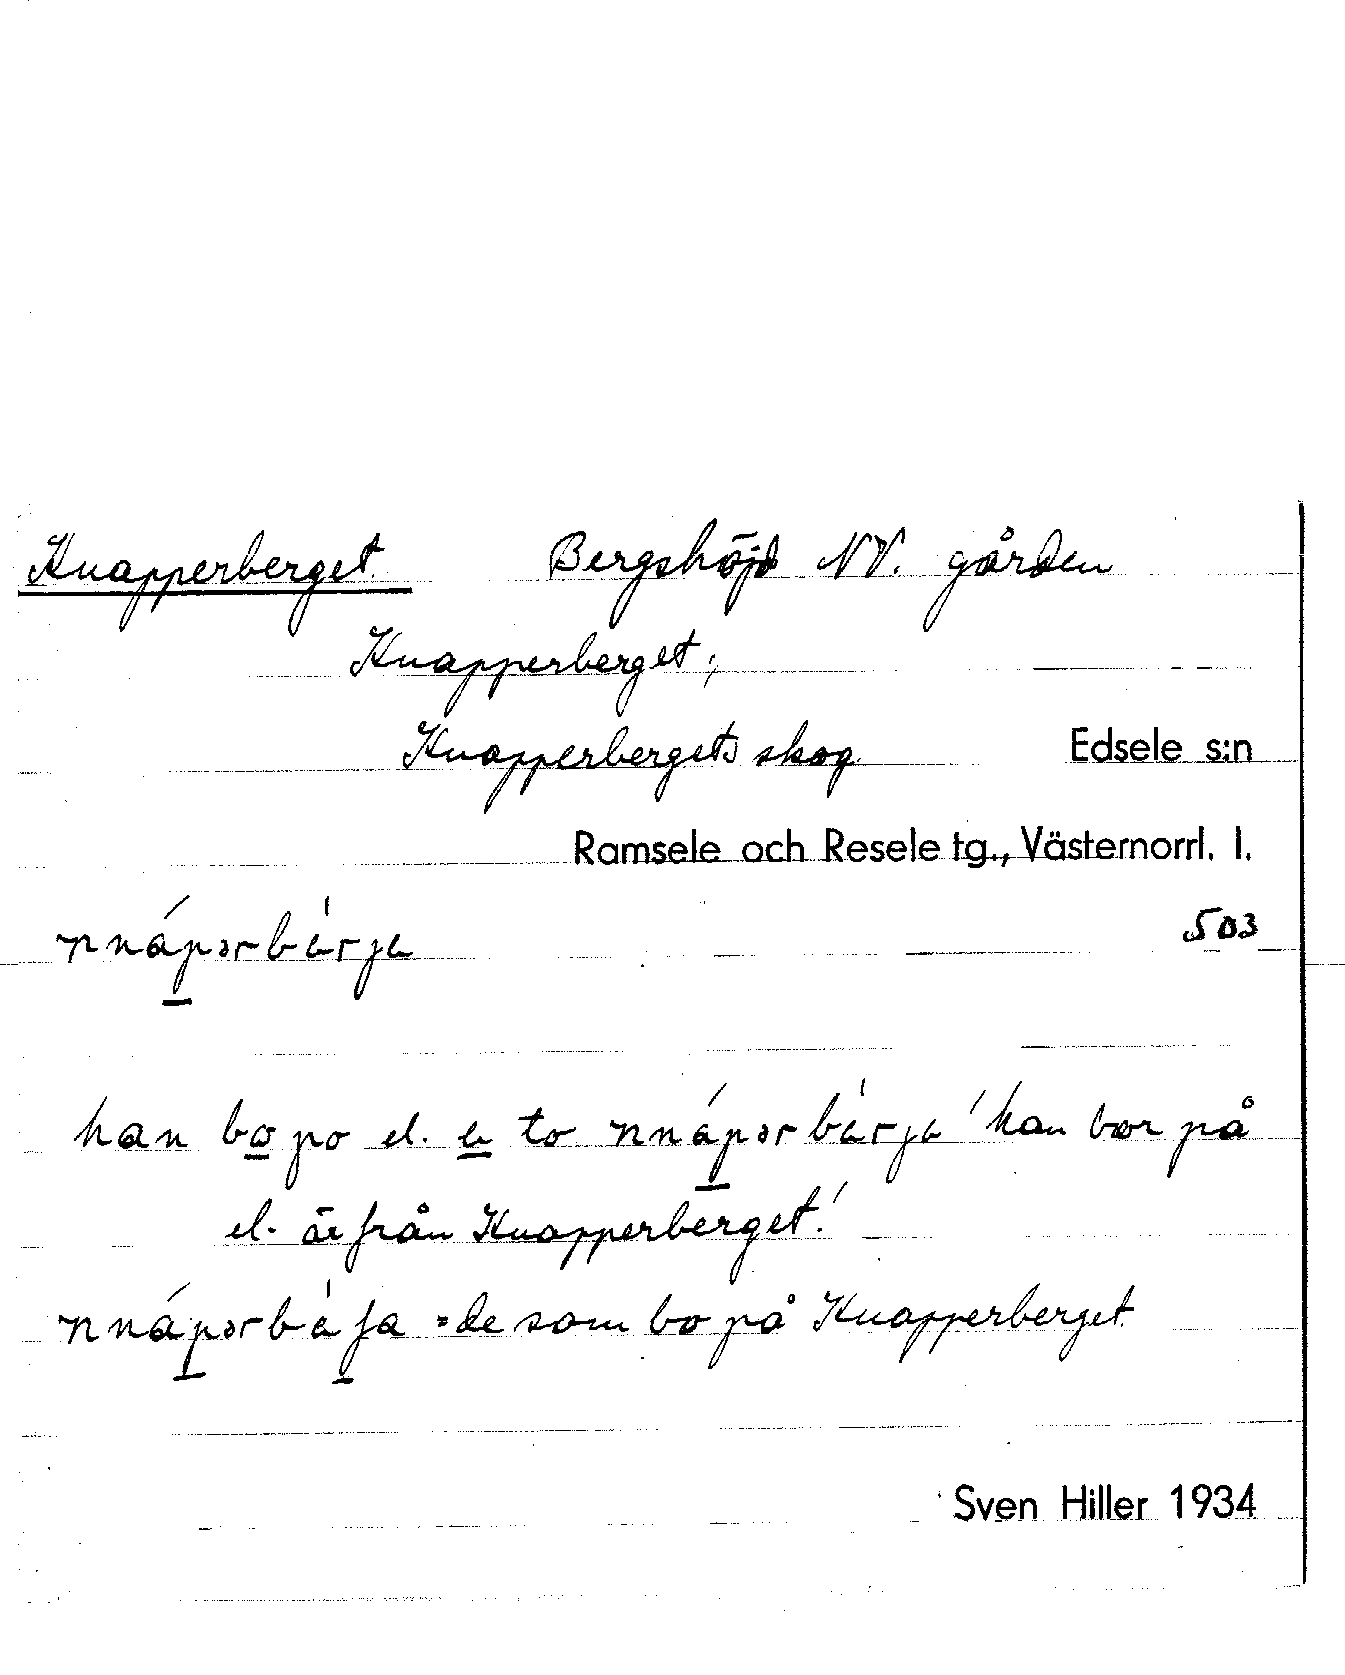 Knapperberget Bergshöjd NV. gården
Knapperberget;
Knapperbergets skog Edsele s:n
Ramsele och Resele tg., Västernorrl. l.
503
han bo po el. to 'han bor på
el. är från Knapperberget.'
=de som bo på Knapperberget
Sven Hiller 1934